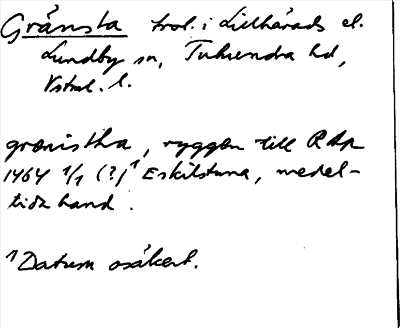 Gränsta trol. i Lillhärads el.
Lundby sn, Tuhundra hd,
Vstml. l.
grænistha, ryggen till RAp
1464 1/1 (?)¹ Eskilstuna, medel-
tida hand.
¹ Datum osäkert.